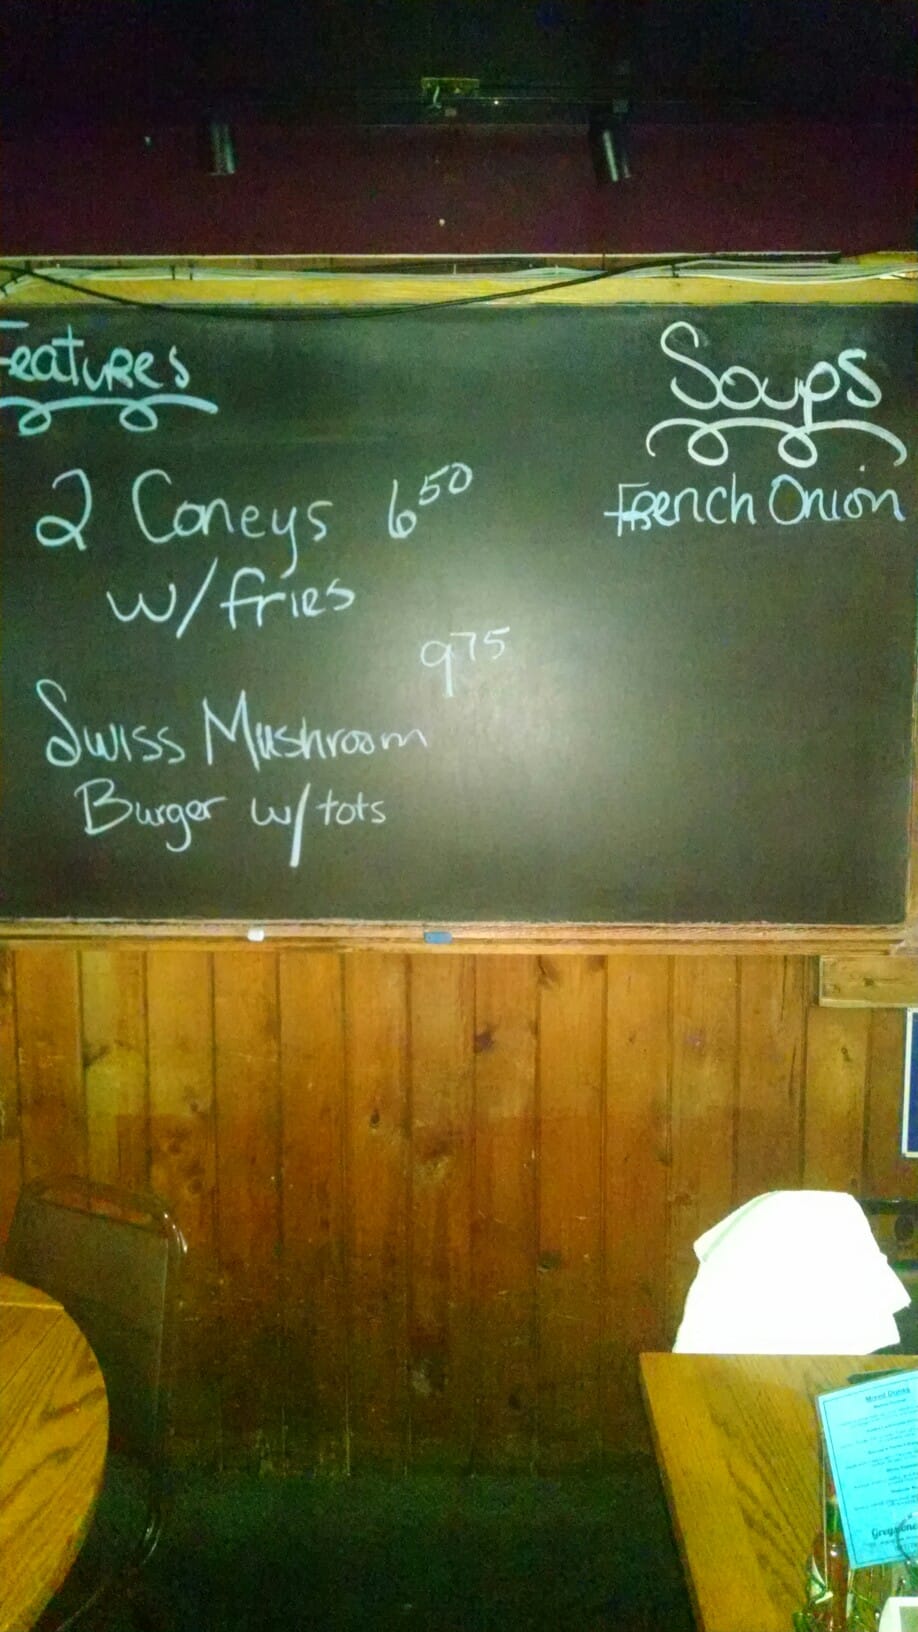 Features
2 Coneys 6 50
w/fries
9 75
Swiss Mushroom
Burger w/tots
Soups
French Onion
Mixed Drinks